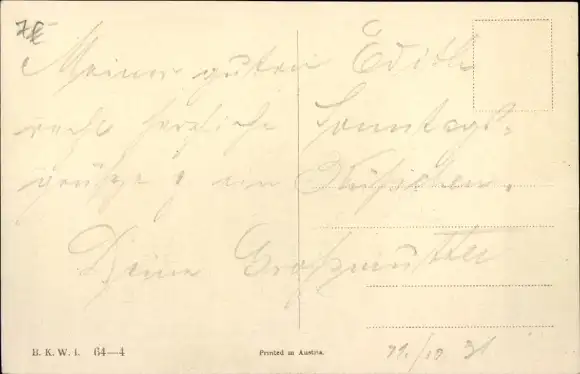 7€
Meiner guten Edith
recht herzliche Sonntags-
grüße & ein Küßchen.
Deine Großmutter
B. K. W. I. 64—4
Printed in Austria.
31